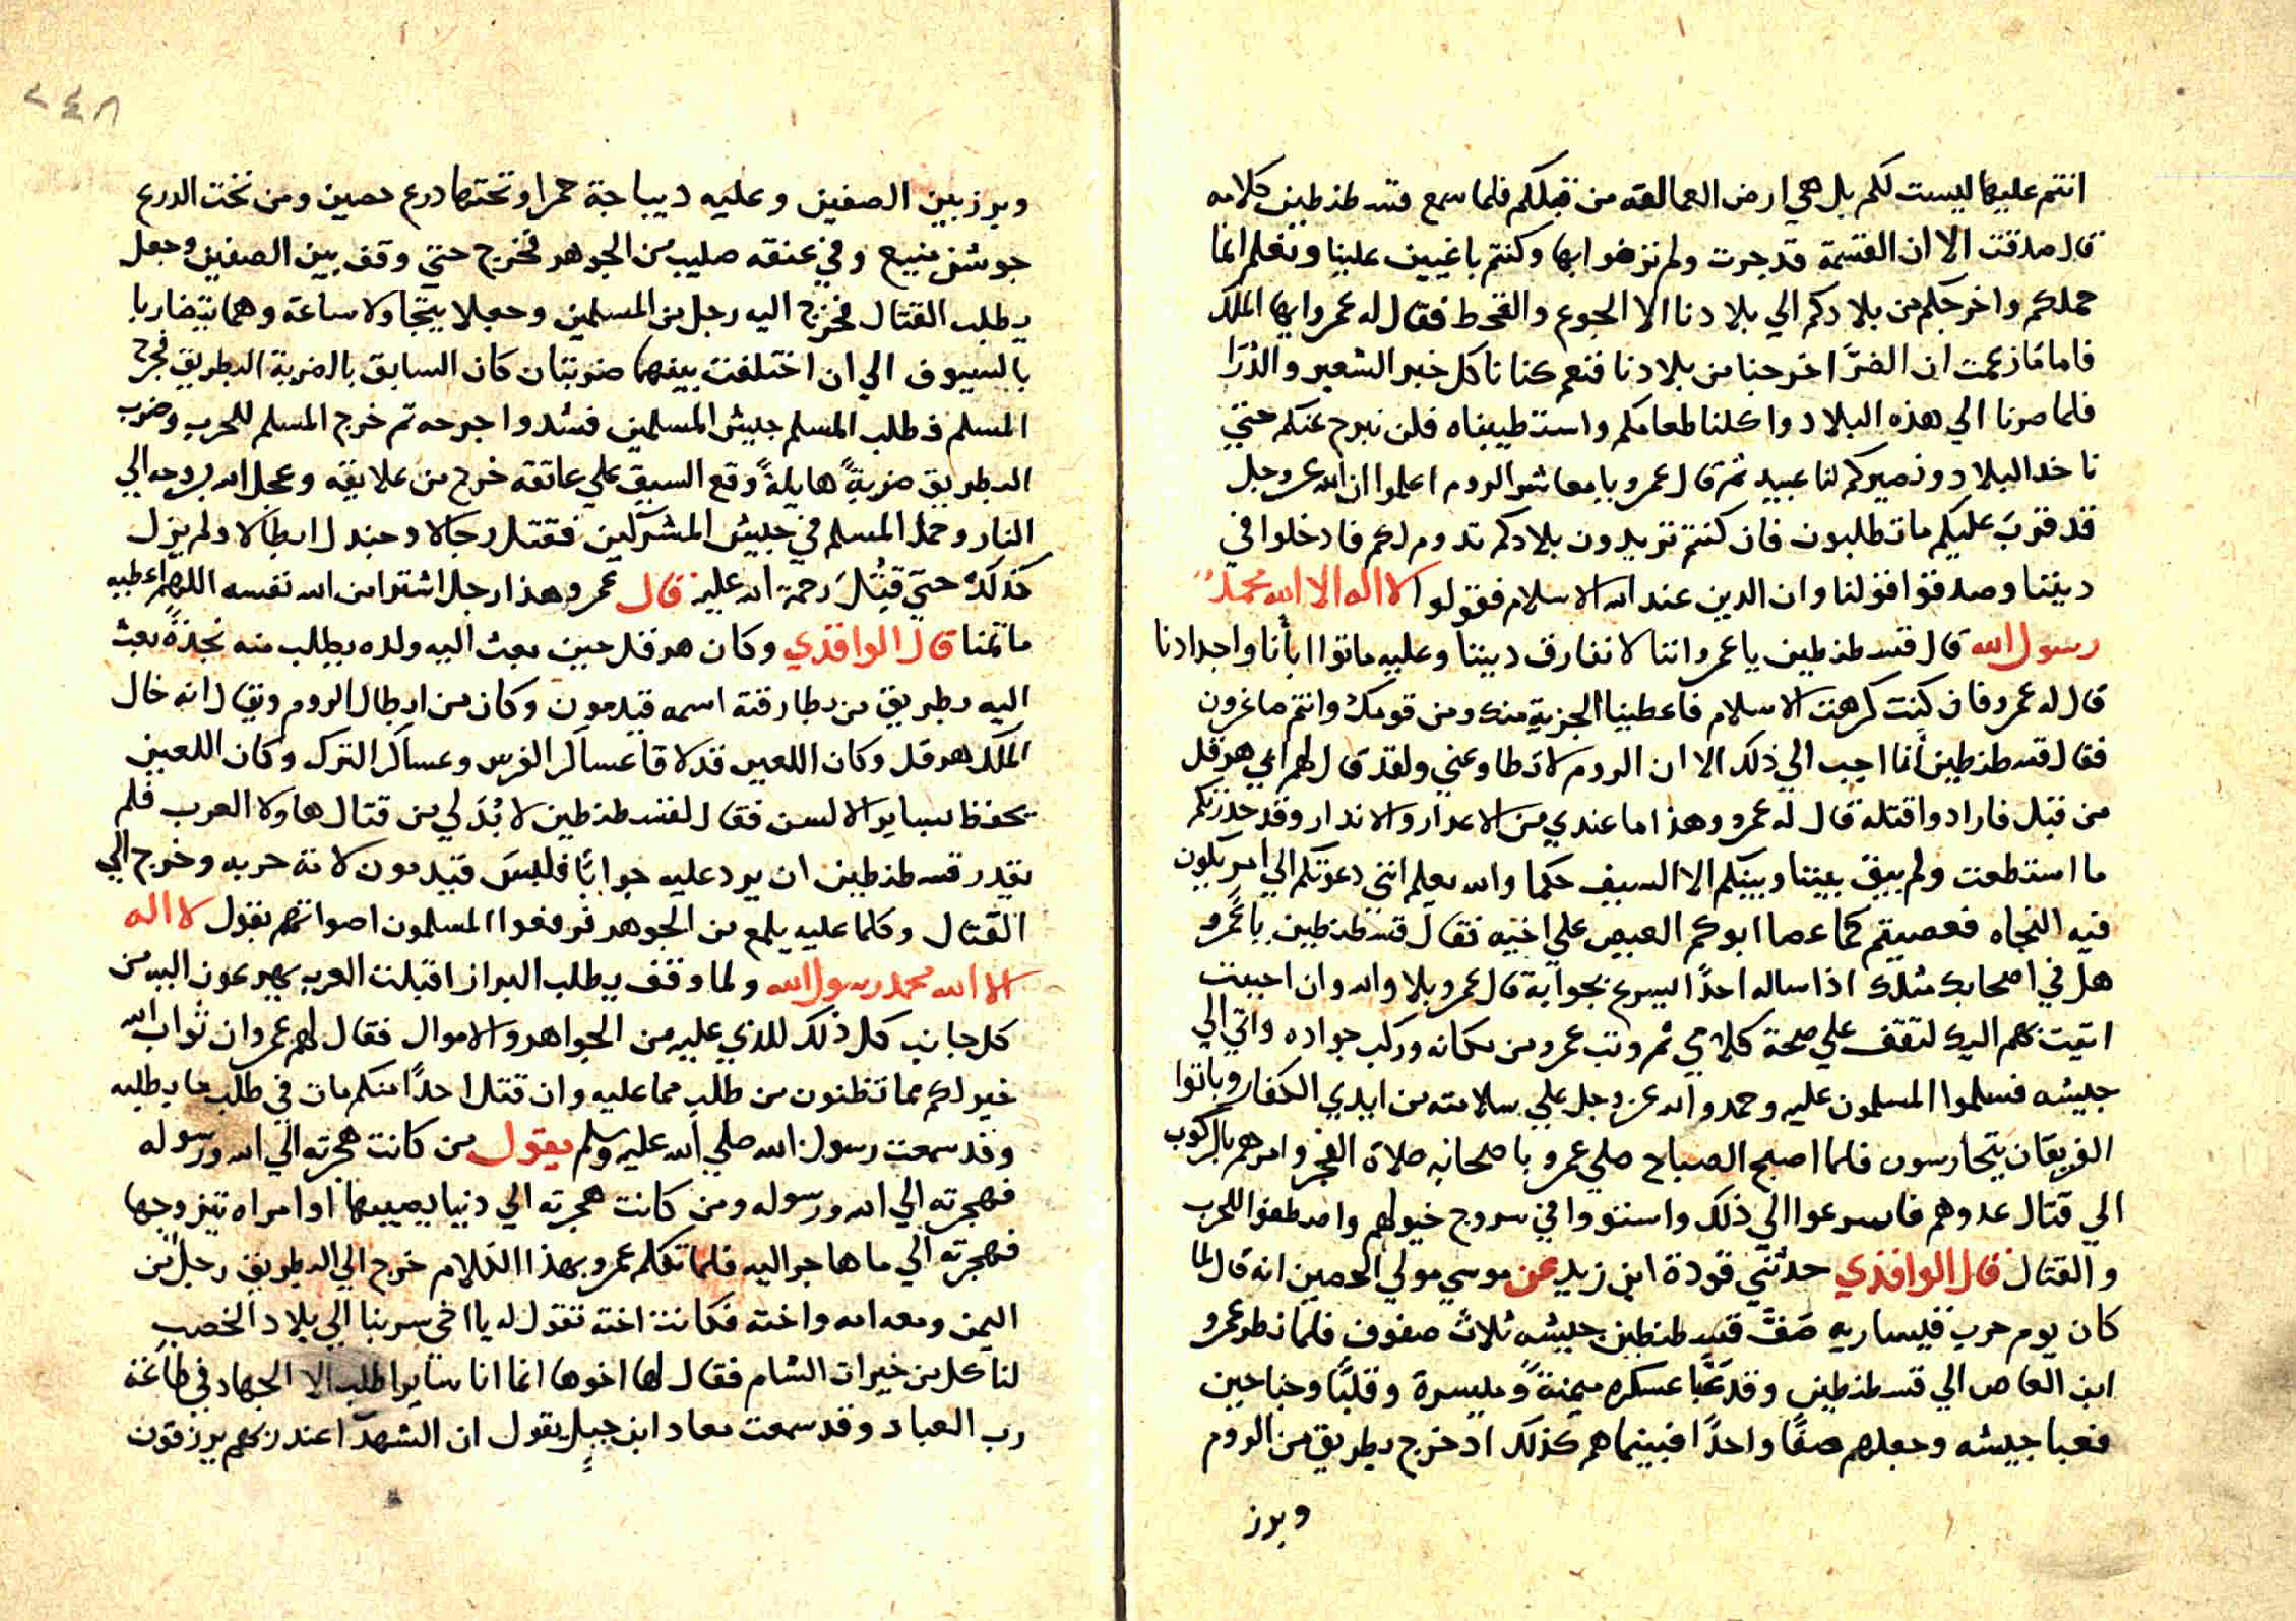 انتم عليها ليست لكم بل هي ارض العمالقه من قبلكم فلما سمع قسطنطين كلامه
قال صدقت الا ان القسمة قد جرت ولم ترضوا بها وكنتم باغيين علينا ونعلم انما
حملكم واخرجكم من بلادكم الي بلادنا الا الجوع والقحط فقال له عمرو ايها الملك
فاما ما زعمت ان الضرّ اخرجنا من بلادنا فنعم كنا ناكل خبز الشعير والذرا
فلما صرنا الي هذه البلاد واكلنا طعامكم واستطيبناه فلن نبرح عنكم حتي
ناخد البلاد ونصيركم لنا عبيد ثم قال عمرو يا معاشر الروم اعلموا ان الله عز وجل
قد قرب عليكم ما تطلبون فان كنتم تريدون بلادكم تدوم لكم فادخلوا في
ديننا وصدقوا قولنا وان الدين عند الله الاسلام فقولوا لا اله الا الله محمدٌ
رسول الله قال قسطنطين يا عمرو اننا لا نفارق ديننا وعليه ماتوا ابأنا واجدادنا
قال له عمرو فان كنت كرهت الاسلام فاعطينا الجزية منك ومن قومك وانتم صاغرون
فقال قسطنطين انما اجيب الي ذلك الا ان الروم لا تطاوعني ولقد قال لهم ابي هرقل
من قبل فارادوا قتله قال له عمرو وهذا ما عندي من الاعدار والاندار وقد حذرتكم
ما استطعت ولم يبق بيننا وبينكم الا السيف حكما والله يعلم انني دعوتكم الي امر يكون
فيه النجاه فعصيتم كما عصا ابوكم العيص علي اخيه فقال قسطنطين يا عمرو
هل في اصحابك مثلك اذا ساله احدًا اسرع بجوابه قال عمرو بلا والله وان احببت
اتيت بهم اليك لتقف علي صحة كلامي ثم وتب عمرو من مكانه وركب جواده واتي الي
جيشه فسلموا المسلمون عليه وحمدوا الله عز وجل علي سلامته من ايدي الكفار وباتوا
الفريقان يتحارسون فلما اصبح الصباح صلي عمرو باصحابه صلاة الفجر وامرهم بالركوب
الي قتال عدوهم فاسرعوا الي ذلك واستووا في سروج خيولهم واصطفوا للحرب
والقتال قال الواقدي حدثني قودة ابن زيد عن موسي مولي الحصين انه قال لما
كان يوم حرب قيساريه صفّ قسطنطين جيشه ثلاث صفوف فلما نظر عمرو
ابن العاص الي قسطنطين وقد عبّا عسكره ميمنةً وميسرة وقلبًا وجناحين
فعبا جيشه وجعلهم صفًا واحدًا فبينما هم كذلك اد خرج بطريق من الروم
وبرز
٢٤٨
وبرز بين الصفين وعليه ديباجة حمرا وتحتها درع حصين ومن تحت الدرع
جوشن منيع وفي عنقه صليب من الجوهر فخرج حتي وقف بين الصفين وجعل
يطلب القتال فخرج اليه رجل من المسلمين وجعلا يتجاولا ساعة وهما يتضاربا
بالسيوف الي ان اختلفت بينهما ضربتان كان السابق بالضربة البطريق فجرح
المسلم فطلب المسلم جيش المسلمين فشدوا جرحه تم خرج المسلم للحرب وضرب
البطريق ضربةً هايلةً وقع السيف علي عاتقه خرج من علايقه وعجل الله بروحه الي
النار وحمل المسلم في جيش المشركين فقتل رجالا وجندل ابطالا ولم يزل
كذلك حتي قُتِلَ رحمة الله عليه قال عمرو هذا رجل اشترا من الله نفسه اللهم اعطيه
ما تمنا قال الواقدي وكان هرقل حين بعث اليه ولده يطلب منه نجدةً بعث
اليه بطريق من بطارقته اسمه قيدمون وكان من ابطال الروم ويقال انه خال
الملك هرقل وكان اللعين قد لاقا عساكر الفرس وعساكر الترك وكان اللعين
يحفظ بساير الالسن فقال لقسطنطين لا بُدّ لي من قتال هاولا العرب فلم
يقدر قسطنطين ان يرد عليه جوابًا فلبس قيدمون لامة حربه وخرج الي
القتال وكلما عليه يلمع من الجوهر فرفعوا المسلمون اصواتهم بقول لا اله
الا الله محمد رسول الله ولما وقف يطلب البراز اقبلت العرب يهرعون اليه من
كل جانب كل ذلك للذي عليه من الجواهر والاموال فقال لهم عمرو ان ثواب الله
خير لكم مما تظنون من طلب مما عليه وان قتل احدًا منكم مات في طلب ما يطلبه
وقد سمعت رسول الله صلي الله عليه وسلم يقول من كانت هجرته الي الله ورسوله
فهجرته الي الله ورسوله ومن كانت هجرته الي دنيا يصيبها او امراه يتزوجها
فهجرته الي ما هاجر اليه فلما تكلم عمرو بهذا الكلام خرج الي البطريق رجل من
اليمن ومعه امه واخته فكانت اخته تقول له يا اخي سر بنا الي بلاد الخصب
لناكل من خيرات الشام فقال لها اخوها انما انا ساير اطلب الا الجهاد في طاعة
رب العباد وقد سمعت معاد ابن جبل يقول ان الشهدآ عند ربهم يرزقون